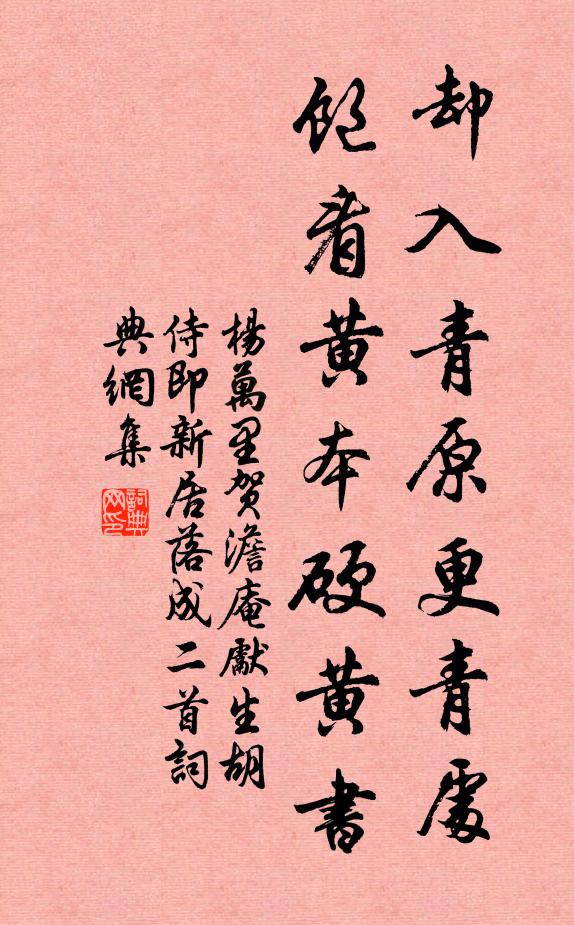 却入青原更青處
飽看黃本硬黃書
楊萬里賀澹庵獻生胡
侍即新居落成二首詞
典網集
詞典
网印